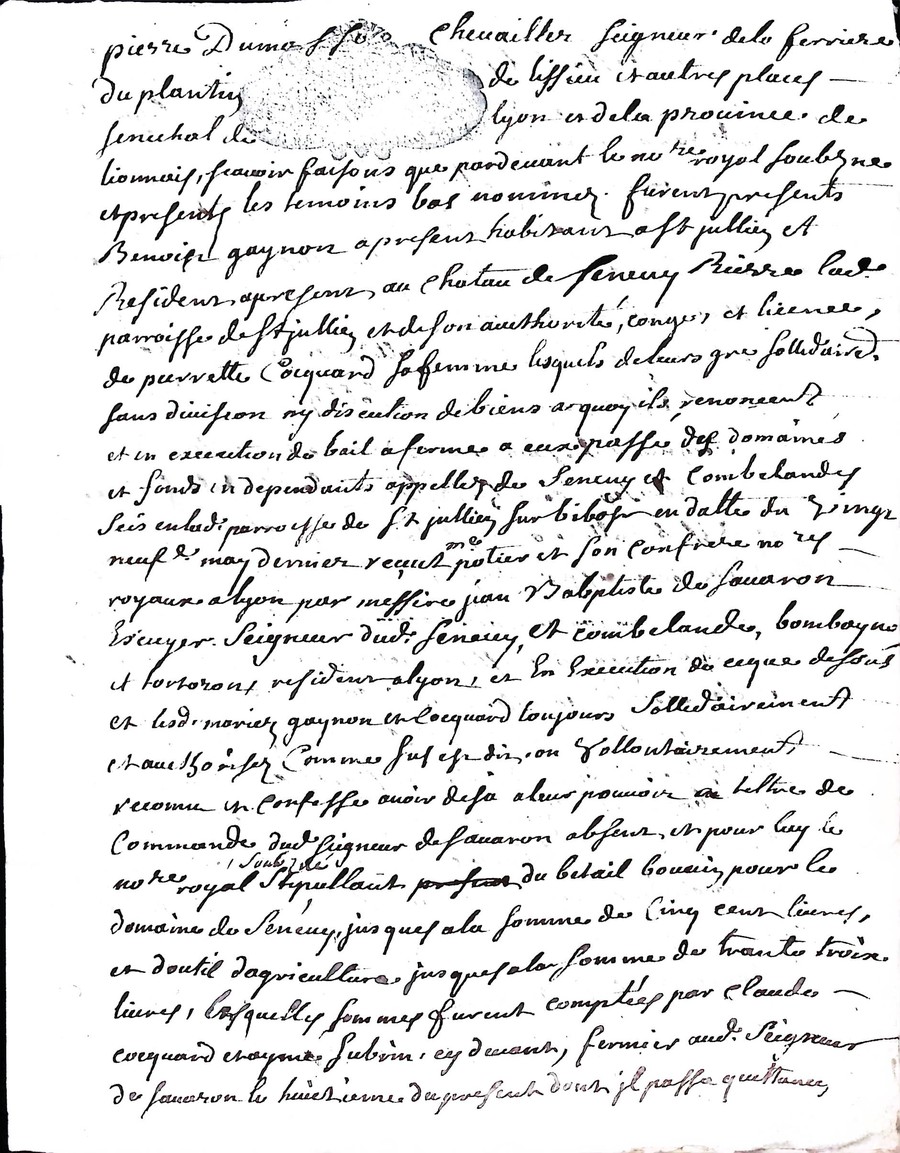 pierre Dumas Chevailler Seigneur dela ferriere
du plantin de lissieu et autres places
senechal de lyon et dela province de
lionnais, scavoir faisons que pardevant le no.re royal soubzne
et presents les temoins bas nommez furent presents
Benoist gaynon apresent habitant a St jullien et
Resident apresent au chatau de Seneuy Rierre lad.
parroisse de St jullien et de son authorité, congé, et licence,
de pierrette Cocquard sa femme lesquels de leurs gré sollidaire.t
sans division ny discution de biens a quoy ils renoncent
et en execution de bail a ferme a eux passé des domaines
et fonds en dependants appellez de Seneuy et Combelandes
Seis en lad. parroisse de St jullien sur bibost en datte du Vingt
neuf e. may dernier reçeut me potier et son confrere no.res
royaux a lyon par messire jean Baptiste de Savaron
Escuyer Seigneur dud. Seneuy, et Combelande,
et resident a lyon, et En Execution de ceque dessus
et lesd. mariez gaynon et Cocquard toujours Sollidairement
et authorisez Comme sus est dit, on Vollontairement
reconnu et Confessé avoir deja a leur pouvoir a tiltre de
Commande dud. Seigneur de Savaron absent, et pour luy le
no.re royal soubzné Stipullant present du betail bouvin pour le
domaine de Seneuy, jusques a la somme de Cinq cent livres,
et d'outil d'agriculture jusques a la somme de trante trois
livres, lesquelles sommes furent comptées par Claude
Cocquard et ayme Subrin cy devant, fermier aud. Seigneur
de Savaron le huictieme du present dont jl passa quittance